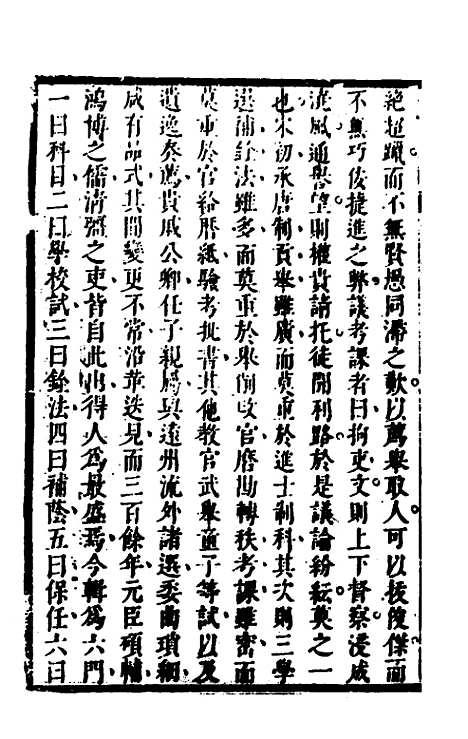 絶超躐而不無賢愚同滯之歎以薦舉取人可以拔俊傑而
不無巧俊捷進之弊議考課者曰拘吏文則上下督察浸成
澆風通譽望則權貴請托徒開利路於是議論紛紜莫之一
也宋初承唐制貢舉雖廣而莫重於進士制科其次則三學
選補銓法雖多而莫重於舉削改官磨勘轉秩考課雖密而
莫重於官給曆紙驗考批書其他教官武舉童子等試以及
遺逸奏薦貴戚公卿任子親屬與遠州流外諸選委曲瑣細
咸有品式其間變更不常沿革迭見而三百餘年元臣碩輔
鴻博之儒清彊之吏皆自此出得人為最盛焉今輯為六門
一曰科目二曰學校試三曰銓法四曰補蔭五曰保任六曰